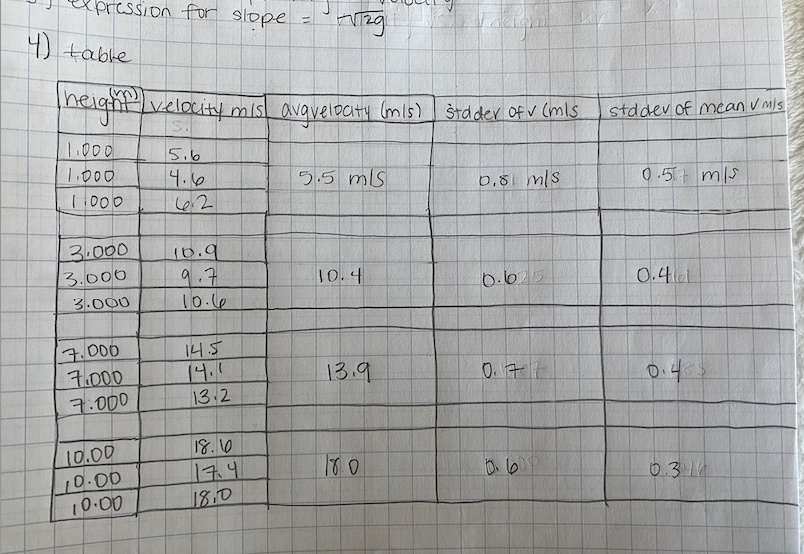 expression for slope = √2g
4) table
height (m) velocity m/s avg velocity (m/s) std dev of v (m/s std dev of mean v m/s
1.000 5.6
1.000 4.6 5.5 m/s 0.8 m/s 0.5 m/s
1.000 6.2
3.000 10.9
3.000 9.7 10.4 0.6 0.4
3.000 10.6
7.000 14.5
7.000 14.1 13.9 0.7 0.4
7.000 13.2
10.00 18.6
10.00 17.4 18.0 0.6 0.3
10.00 18.0